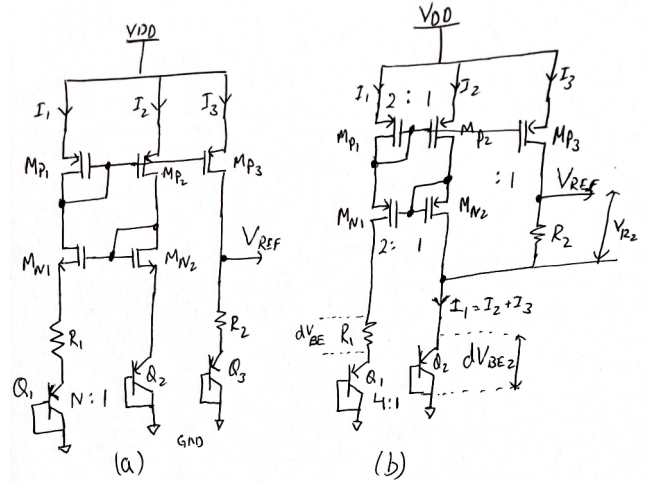 VDD
I1 I2 I3
MP1 MP2 MP3
VREF
MN1 MN2
R1 R2
Q1 N:1 Q2 Q3
GND
(a)
VDD
I1 2 : 1 I2 I3
MP1 MP2 MP3
: 1
VREF
MN1 MN2
2: 1
R2 VR2
I1=I2+I3
dVBE R1
Q1 Q2 dVBE2
4:1
(b)